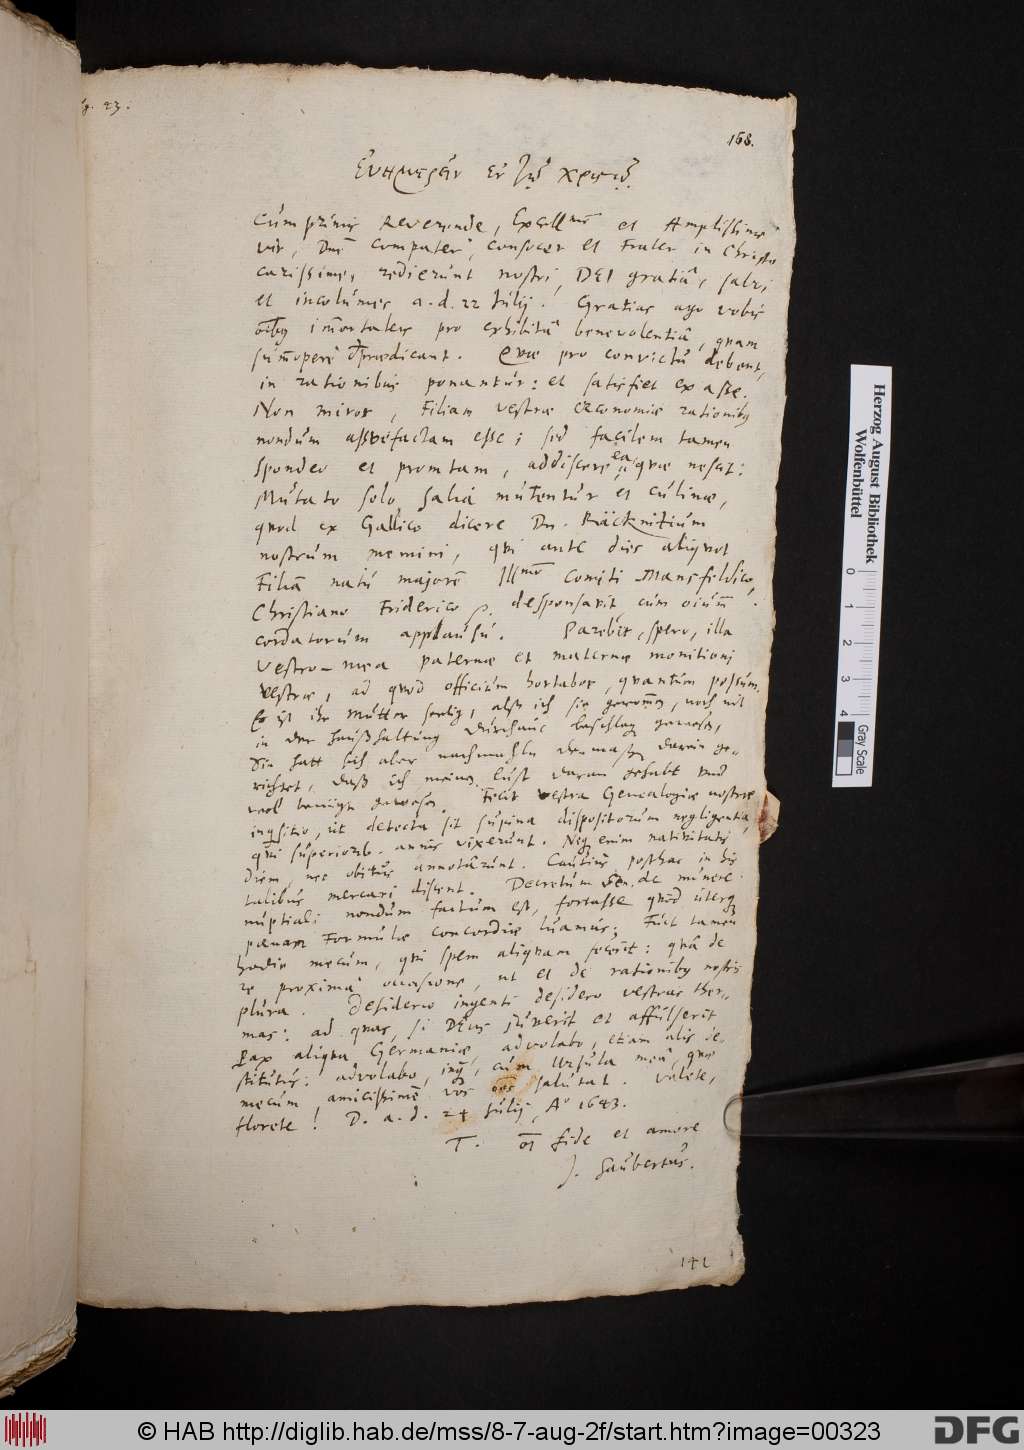 g. 23.
168.
Ευημερεῖν ἐν Ἰησȣ͂ χριστȣ͂.
Cum primis Reverende, Excell.me et Amplissime
vir, Dn̄e compater, consocer et Frater in Christo
carissime, redierunt nostri, DEI gratiâ, salvi
et incolumes a. d. 22 Julij. Gratias ago vobis
oīby im̄ortales pro exhibitâ benevolentiâ, quam
sum̄opere depraedicant. Quae pro convictu debent,
in rationibus ponantur: et satisfiet ex asse.
Non miror, Filiam vestrae oeconomiae rationiby
nondum assvefactam esse; sed facilem tamen
spondeo et promtam, addiscere ea quae nescit:
Mutato solo salia mutentur et culinae,
quod ex Gallico dicere Dn. Räcknitium
nostrum memini, qui ante dies aliquot
Filiā natu majorē Illmo Comiti Mansfeldico,
Christiano Friderico p. desponsavit cum oium̄
cordatorum applausu. Parebit, spero, illa
vestro-mea paternae et maternae monitioni
vestrae, ad quod officium hortabor, quantum possum.
Es ist ihr Mutter seelig, alß ich sie genom̄en, noch nit
in der haußhaltung durchauß beschlagen gewesen,
Sie hatt sich aber nachmahln dermaßen darein ge-
richtet, daß ich meinen lust daran gehabt vnd
woll benügt gewesen. Fecit vestra Genealogiae nostrae
inquisitio, ut detecta sit supina dispositorum negligentia,
qui superiorib. annis vixerunt. Neq enim nativitatis
diem, nec obitus annotârunt. Cautius posthac in his
talibus mercari discent. Decretum Sen. de munere
nuptiali nondum factum est, fortasse quod uterq
poenam Formulae concordiae luamus; Fuit tamen
hodie mecum, qui spem aliquam fecerit: quâ de
re proximâ occasione, ut et de rationiby nostris
plura. Desiderio ingenti desidero vestras ther-
mas: ad quas, si DEus juverit et affulserit
Pax aliqua Germaniae, advolabo, etiam alis de-
stitutus: advolabo, inq, cum Ursula meâ, quae
mecum amicissimē vos oēs salutat. Valete,
florete! D. a. d. 24 Julij, Ao 1643.
T. oī fide et amore
J. Saubertus.
141
Herzog August Bibliothek
Wolfenbüttel
0 1 2 3 4
Gray Scale
© HAB http://diglib.hab.de/mss/8-7-aug-2f/start.htm?image=00323
DFG